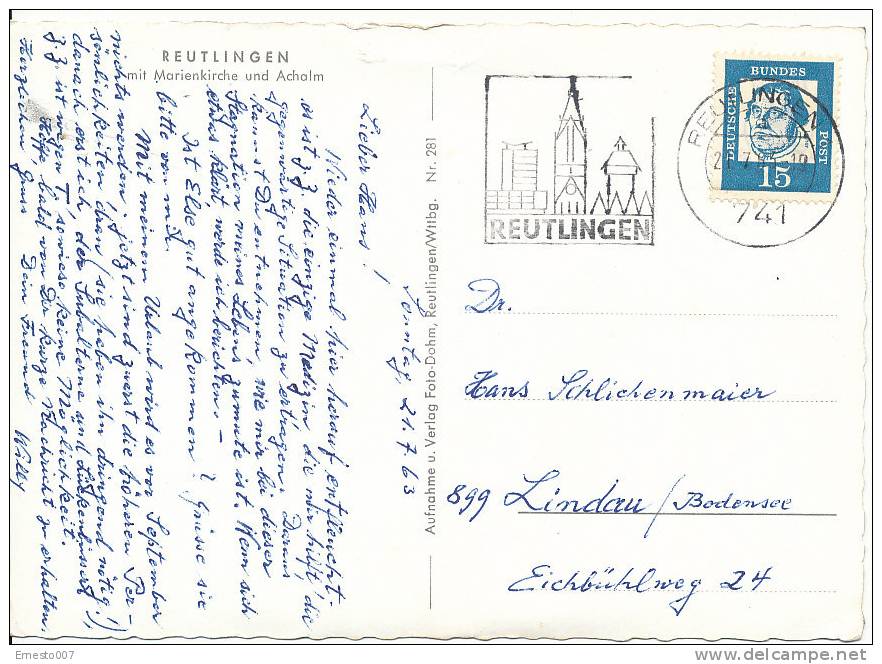 REUTLINGEN
mit Marienkirche und Achalm
Sonntag, 21.7.63
Lieber Hans!
Wieder einmal hier herauf entfleucht –
es ist z.Z. die einzige Medizin die mir hilft, die
gegenwärtige Situation zu ertragen. Daraus
kannst Du entnehmen, wie mir bei dieser
Stagnation meines Lebens zumute ist. Wenn sich
etwas klärt, werde ich berichten. –
Ist Else gut angekommen? Grüsse sie
bitte von mir.
Mit meinem Urlaub wird es vor September
nichts werden. Jetzt sind zuerst die höheren Per-
sönlichkeiten dran (sie haben ihn dringend nötig!),
danach erst ich, der Subalterne und Lückenbüsser!
z.Z. ist wegen T, sowieso keine Möglichkeit.
Hoffe, bald von Dir kurze Nachricht zu erhalten.
Herzlichen Gruss Dein Freund Willy
Aufnahme u. Verlag Foto-Dohm, Reutlingen/Wttbg. Nr. 281
REUTLINGEN
REUTLINGEN
741
DEUTSCHE BUNDESPOST
15
Dr.
Hans Schlichenmaier
899 Lindau/Bodensee
Eichbühlweg 24
Ernesto007
delcampe.net